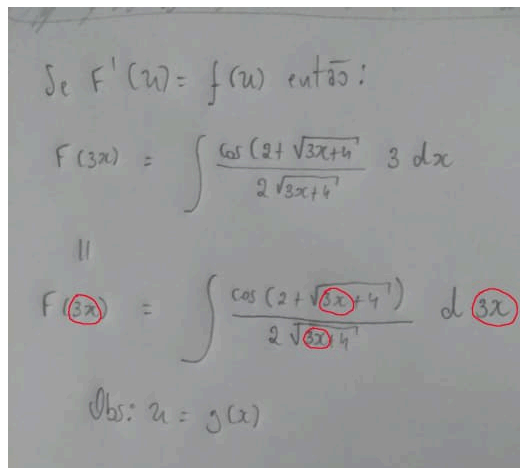 Se F'(u) = f(u) então:
F(3x) = ∫ cos(2+√3x+4 / 2√3x+4 3 dx
||
F(3x) = ∫ cos(2+√3x+4) / 2√3x+4 d 3x
Obs: u = g(x)